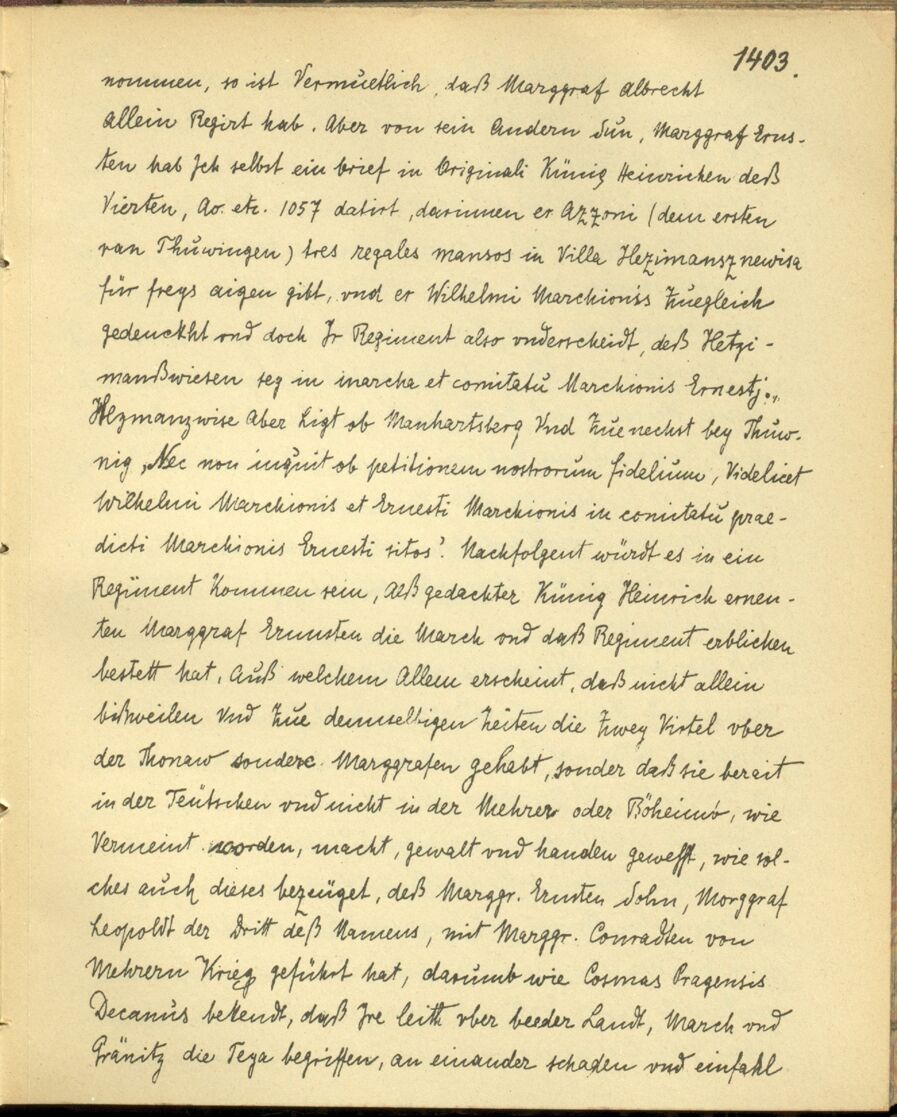 1403.
nommen, so ist Vermuetlich, daß Marggraf Albrecht
allein Regirt hab. Aber von sein Andern Sun, Marggraf Erns-
ten hab Jch selbst ein brief in Originali Künig Heinrichen deß
Vierten, Ao. etc. 1057 datirt, darinnen er Azzoni (dem ersten
van Thuwingen) tres regales mansos in Villa Hezimansznewisa
für freys aigen gibt, vnd er Wilhelmi Marchionis Zuegleich
gedenckht vnd doch Jr Regiment also vnderscheidt, deß Hetzi-
manßwiesen seg in marcha et comitatu Marchionis Ernestj.,,
Hezmanzwise Aber Ligt ob Manhartsberg Vnd Zuenechst bey Thuw-
nig „Nec non inquit ob petitionem nostrorum fidelium, Videlicet
Wilhelmi Marchionis et Ernesti Marchionis in comitatu prae-
dicti Marchionis Ernesti sitos'. Nachfolgent würdt es in ein
Regiment Kommen sein, Alß gedachter Künig Heinrich ernen-
ten Marggraf Ernnsten die March vnd daß Regiment erblichen
bestett hat, Auß welchem Allem erscheint, daß nicht allein
bißweilen Vnd Zue dennselbigen Zeiten die Zwey Virtel vber
der Thonaw sondere Marggrafen gehabt, sonder daß sie berait
in der Teütschen vnd nicht in der Mehrer oder Böheimb, wie
Vermeint worden, macht, gewalt vnd handen gewesst, wie sol-
ches auch dieses bezeüget, deß Marggr. Ernsten Sohn, Marggraf
Leopoldt der Dritt deß Namens, mit Marggr. Conradten von
Mehrern Krieg geführt hat, darumb wie Cosmas Pragensis
Decanus bekendt, daß Jre leith vber beeder Landt, March vnd
Gränitz die Teya begriffen, an einander schaden vnd einfahl